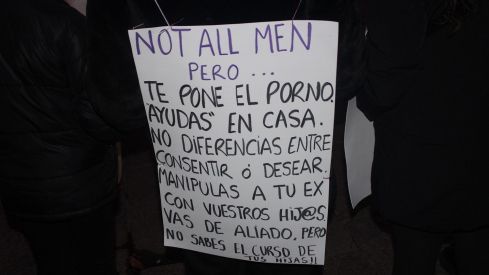 NOT ALL MEN
PERO ...
TE PONE EL PORNO.
"AYUDAS" EN CASA.
NO DIFERENCIAS ENTRE
CONSENTIR ó DESEAR.
MANIPULAS A TU EX
CON VUESTROS HIJ@S.
VAS DE ALIADO, PERO
NO SABES EL CURSO DE
TUS HIJAS!!